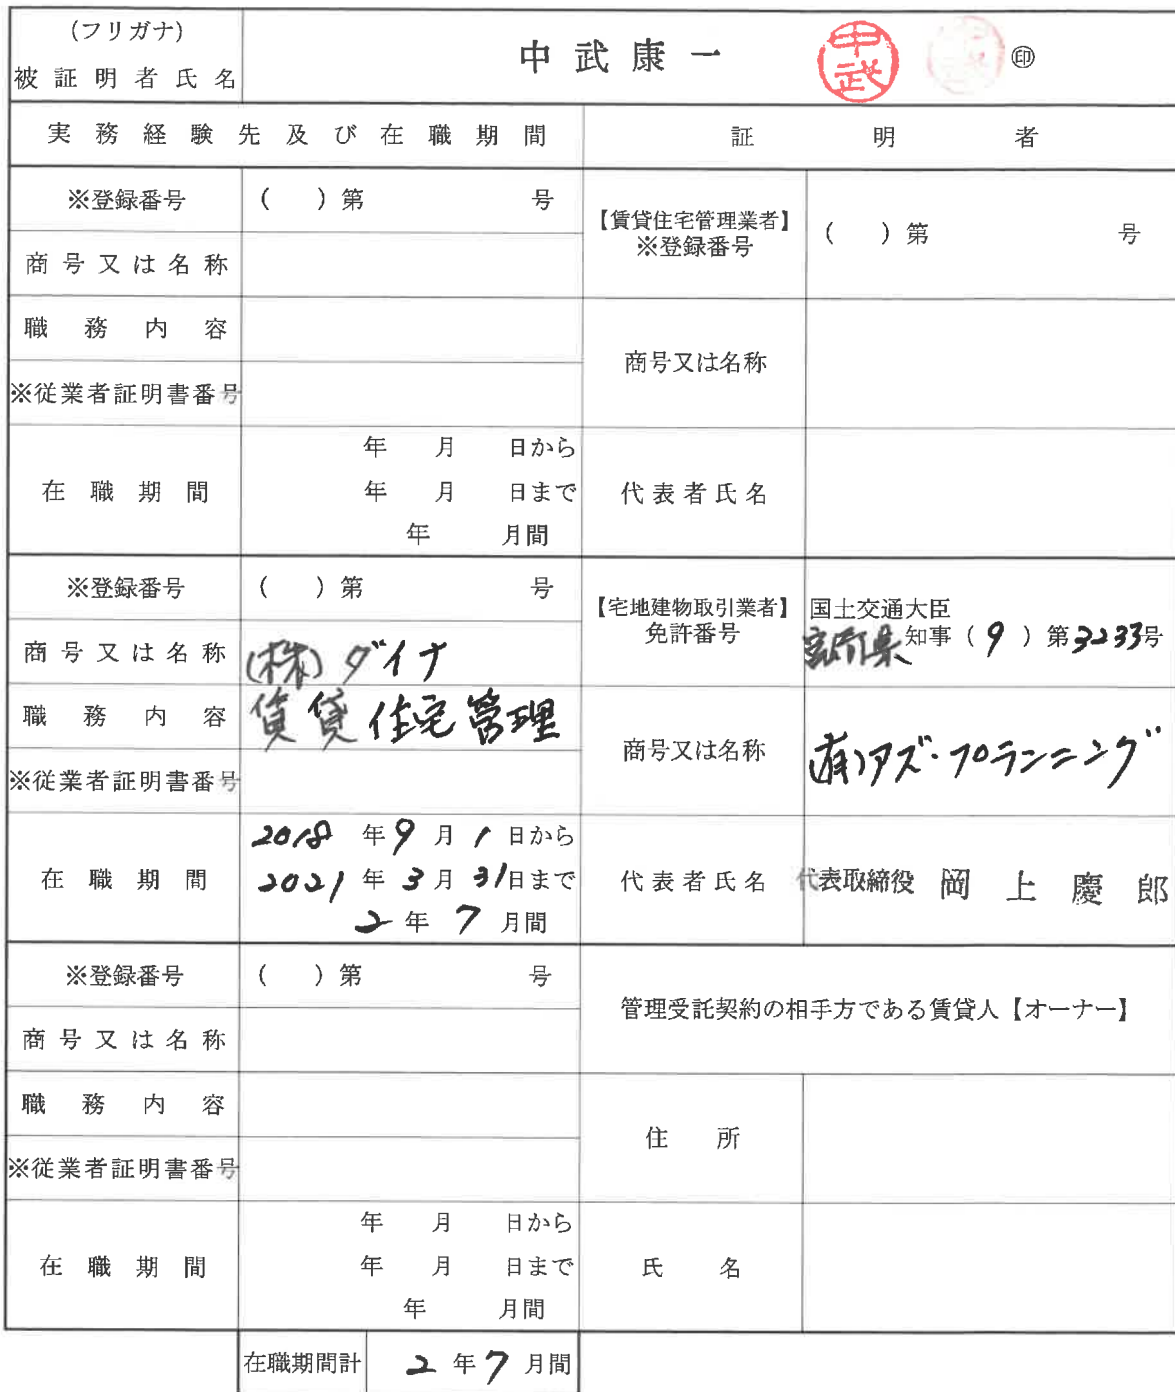 (フリガナ)
被証明者氏名
中武康一
中武
㊞
実務経験先及び在職期間
証明者
※登録番号
( )第 号
商号又は名称
職務内容
※従業者証明書番号
在職期間
年 月 日から
年 月 日まで
年 月間
【賃貸住宅管理業者】
※登録番号
( )第 号
商号又は名称
代表者氏名
※登録番号
( )第 号
商号又は名称
(株)ダイナ
職務内容
賃貸住宅管理
※従業者証明書番号
在職期間
2018 年 9 月 1 日から
2021 年 3 月 31 日まで
2 年 7 月間
【宅地建物取引業者】
免許番号
国土交通大臣
宮崎県 知事 ( 9 ) 第 3233 号
商号又は名称
(有)アズ・プランニング
代表者氏名
代表取締役 岡上慶郎
※登録番号
( )第 号
商号又は名称
職務内容
※従業者証明書番号
在職期間
年 月 日から
年 月 日まで
年 月間
管理受託契約の相手方である賃貸人【オーナー】
住所
氏名
在職期間計
2 年 7 月間